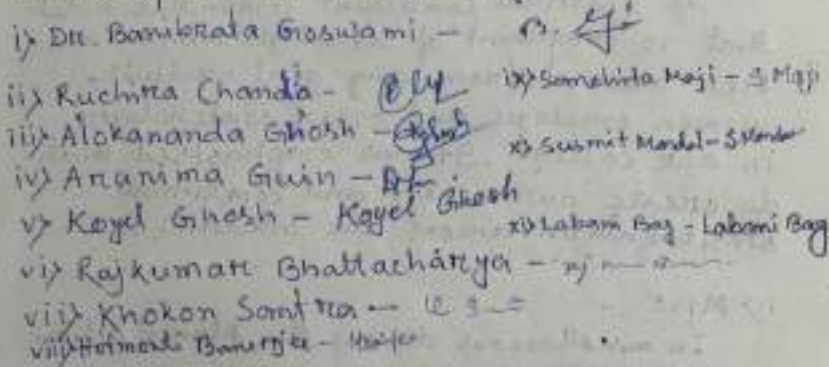 i) Dr. Banibrata Goswami -
ii) Ruchira Chanda -
iii) Alokananda Ghosh - Ghosh
iv) Aranima Guin -
v) Koyel Ghosh - Koyel Ghosh
vi) Rajkumar Bhattacharya -
vii) Khokon Santra -
viii) Haimanti Banerjee -
ix) Somehita Maji - S Maji
x) Susmit Mandal - S Mandal
xi) Labani Bag - Labani Bag